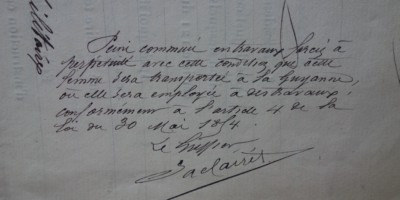 Militaire
Peine commuée en travaux forcés à
perpétuité avec cette condition que cette
femme sera transportée à la Guyanne,
où elle sera employée à des travaux,
conformément à l'article 4 de la
loi du 30 Mai 1854.
Le Greffier